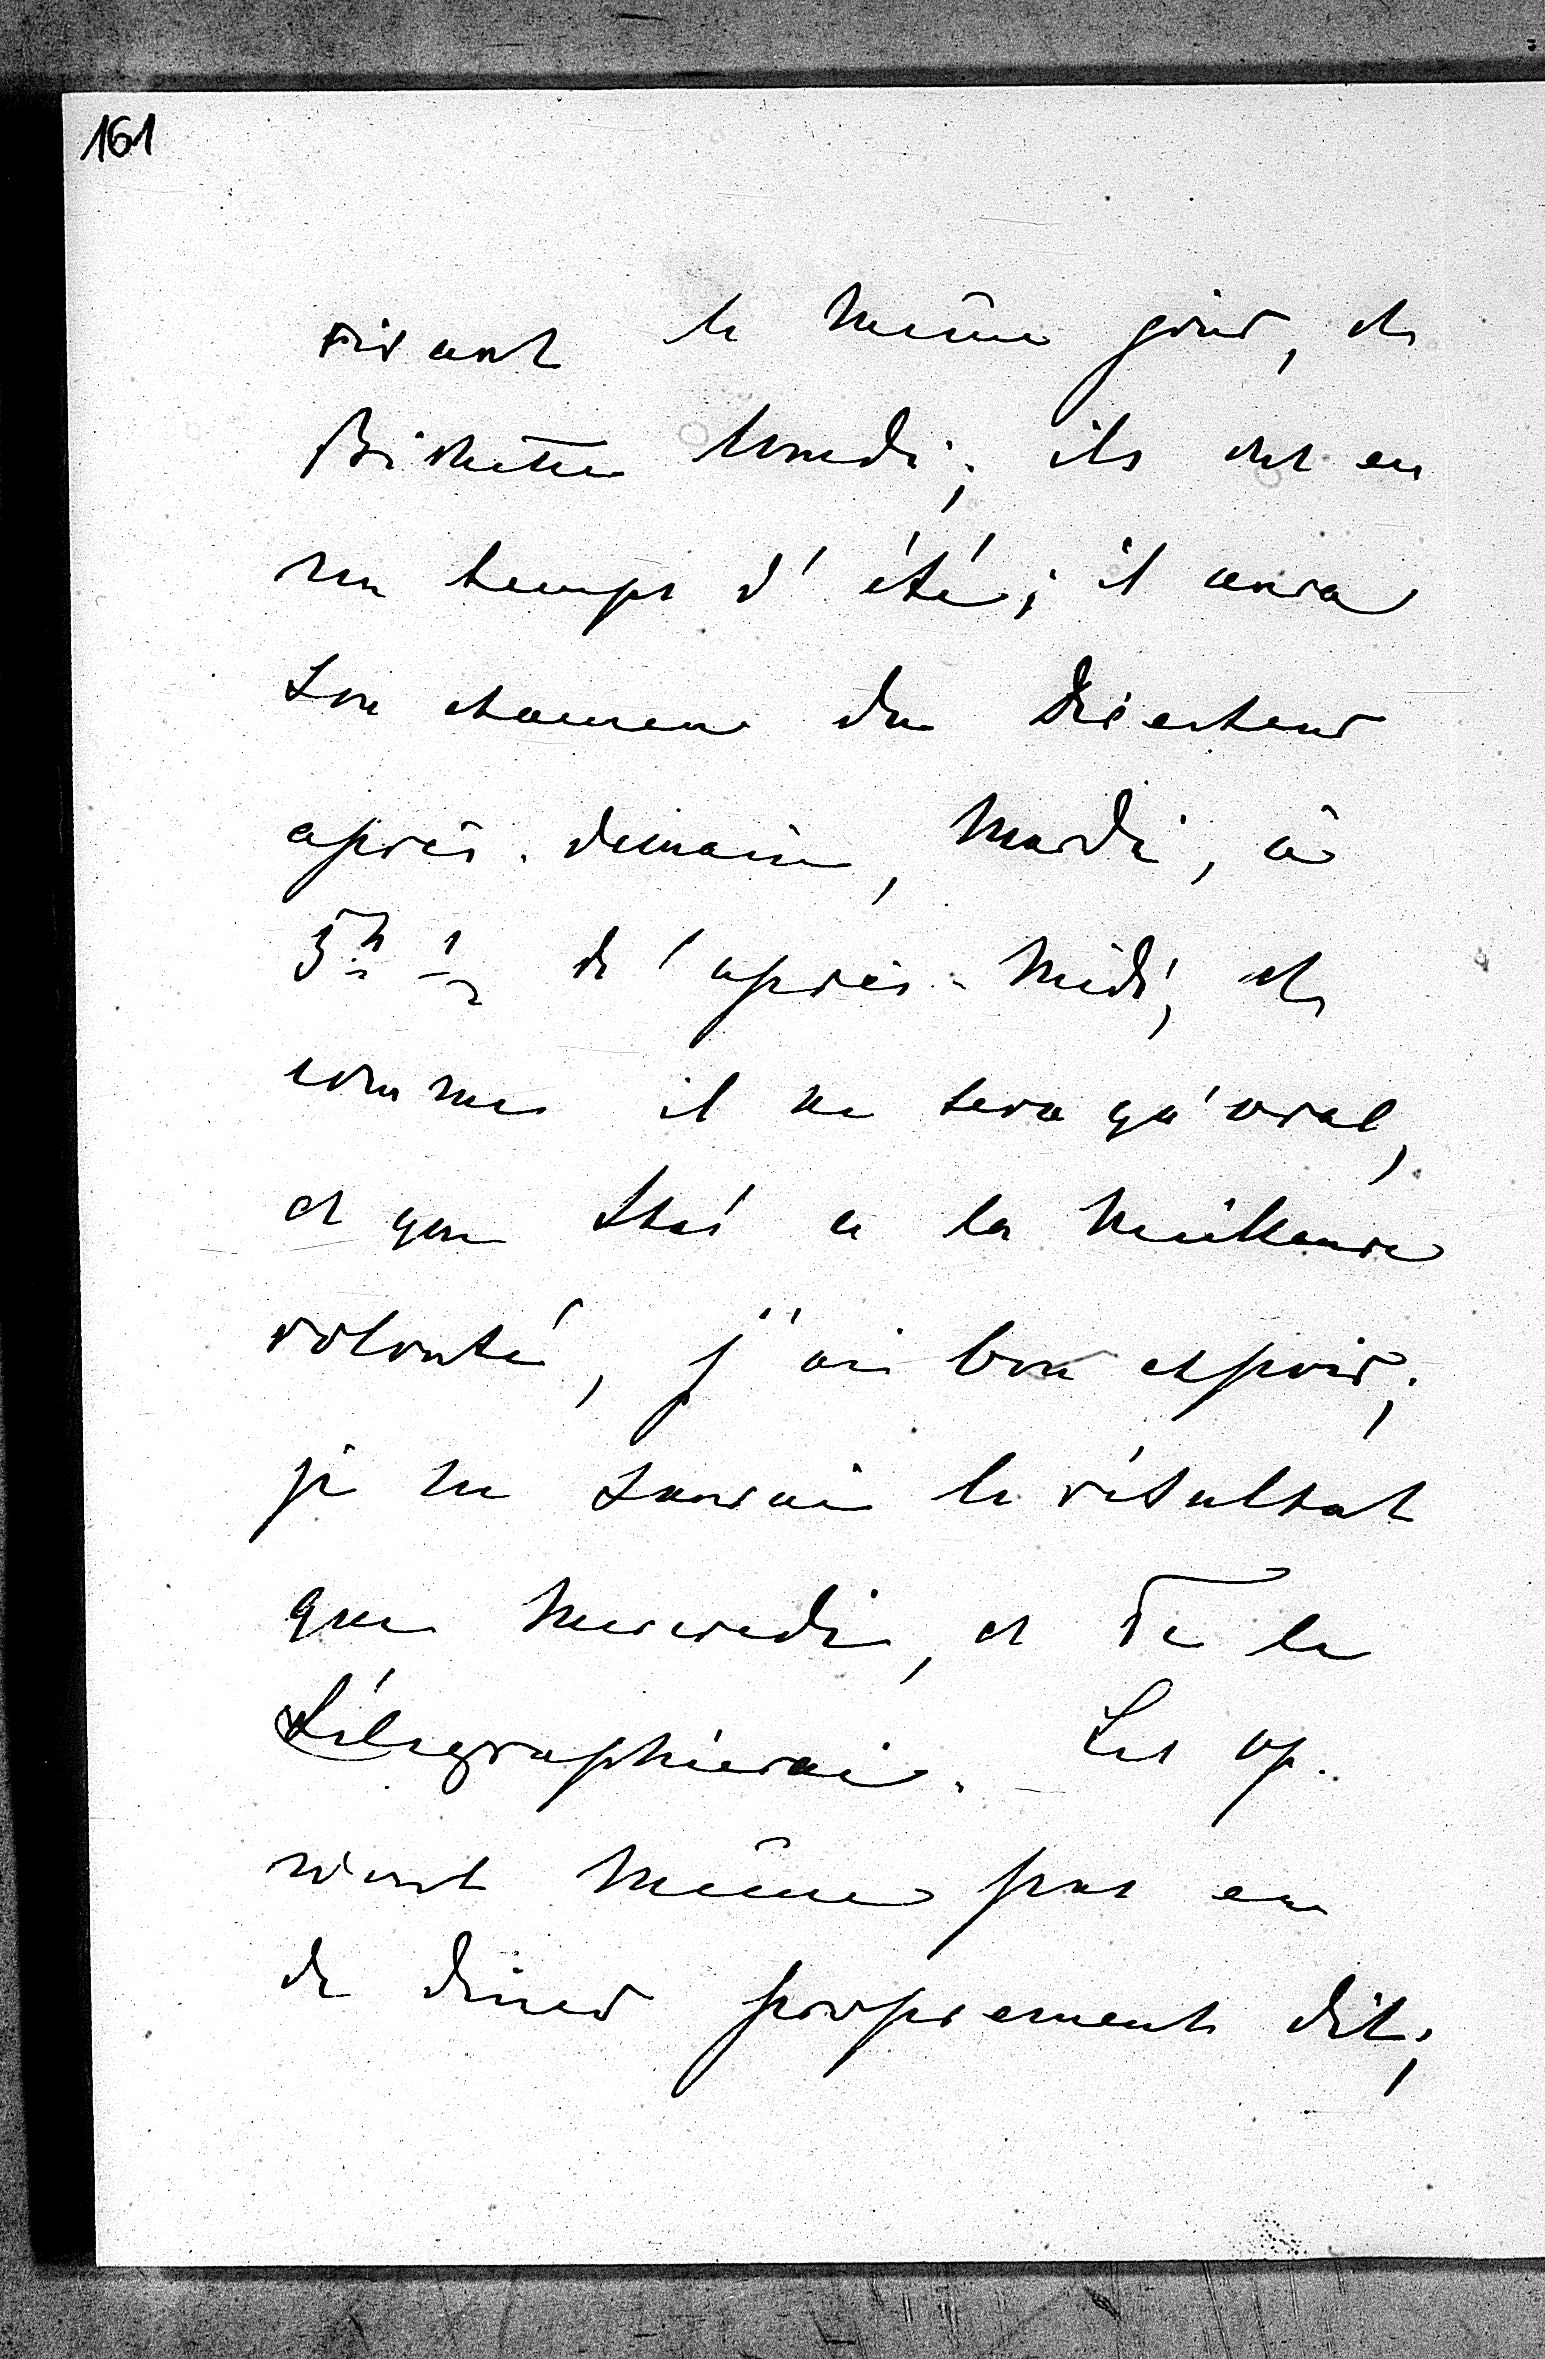 161
visant le même jour, et
Bichette lundi; ils ont eu
un temps d'été; il aura
son examen du Directeur
après-demain, Mardi, à
5h ½ de l'après-midi, et
comme il ne sera qu'oral,
et que a la meilleure
volonté, j'ai bon espoir;
je ne saurai le résultat
que Mercredi, et Te le
télégraphierai. Les
n'ont même pas eu
de dîner proprement dit;